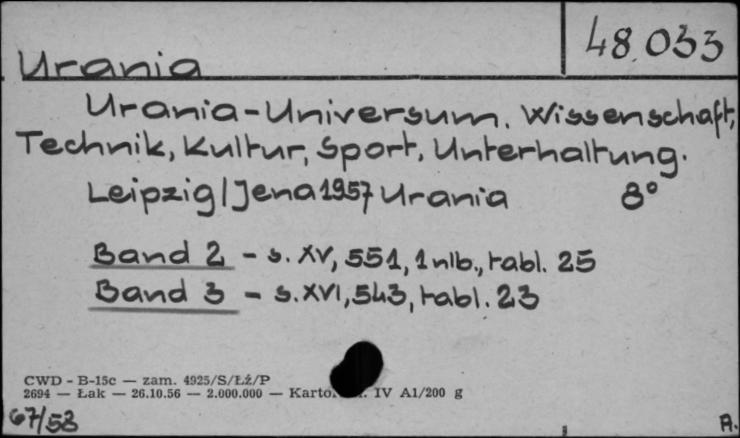 48.033
Urania
Urania-Universum. Wissenschaft,
Technik, Kultur, Sport, Unterhaltung.
Leipzig/Jena 1957 Urania 8°
Band 2 - s. XV, 551, 1 nlb., tabl. 25
Band 3 - s. XVI, 543, tabl. 23
CWD - B-15c — zam. 4925/S/Łź/P
2694 — Łak — 26.10.56 — 2.000.000 — IV A1/200 g
67/58
A.